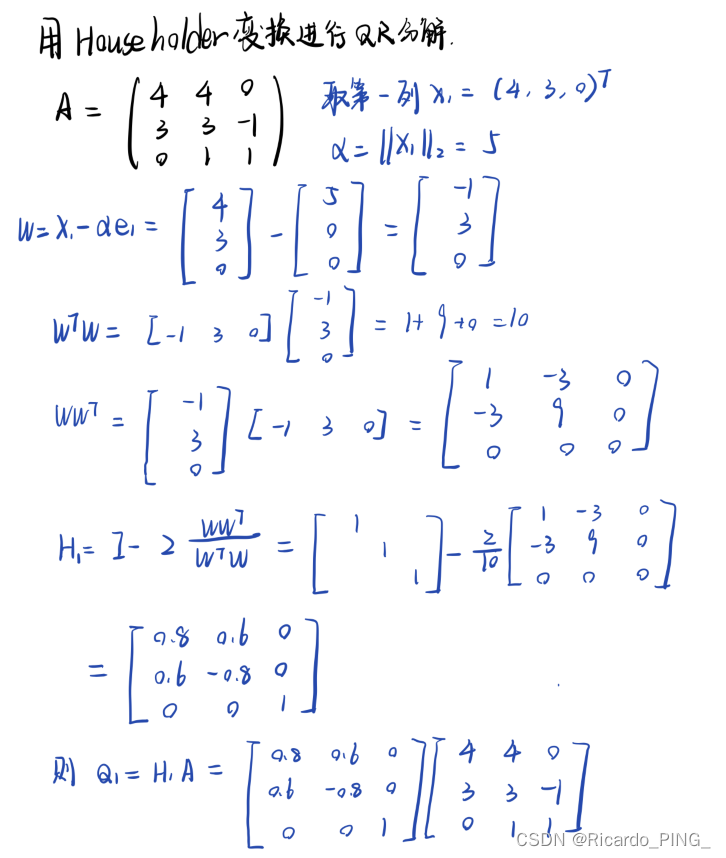 用 Householder 变换进行QR分解.
A = ( 4 4 0 ; 3 3 -1 ; 0 1 1 ) 取第一列 x₁ = (4, 3, 0)ᵀ
α = ||X₁||₂ = 5
W = X₁ - αe₁ = [ 4 ; 3 ; 0 ] - [ 5 ; 0 ; 0 ] = [ -1 ; 3 ; 0 ]
WᵀW = [-1 3 0] [ -1 ; 3 ; 0 ] = 1+9+0 = 10
WWᵀ = [ -1 ; 3 ; 0 ] [-1 3 0] = [ 1 -3 0 ; -3 9 0 ; 0 0 0 ]
H₁ = I - 2 WWᵀ/WᵀW = [ 1 ; 1 ; 1 ] - 2/10 [ 1 -3 0 ; -3 9 0 ; 0 0 0 ]
= [ 0.8 0.6 0 ; 0.6 -0.8 0 ; 0 0 1 ]
则 Q₁ = H₁A = [ 0.8 0.6 0 ; 0.6 -0.8 0 ; 0 0 1 ] [ 4 4 0 ; 3 3 -1 ; 0 1 1 ]
CSDN @Ricardo_PING_